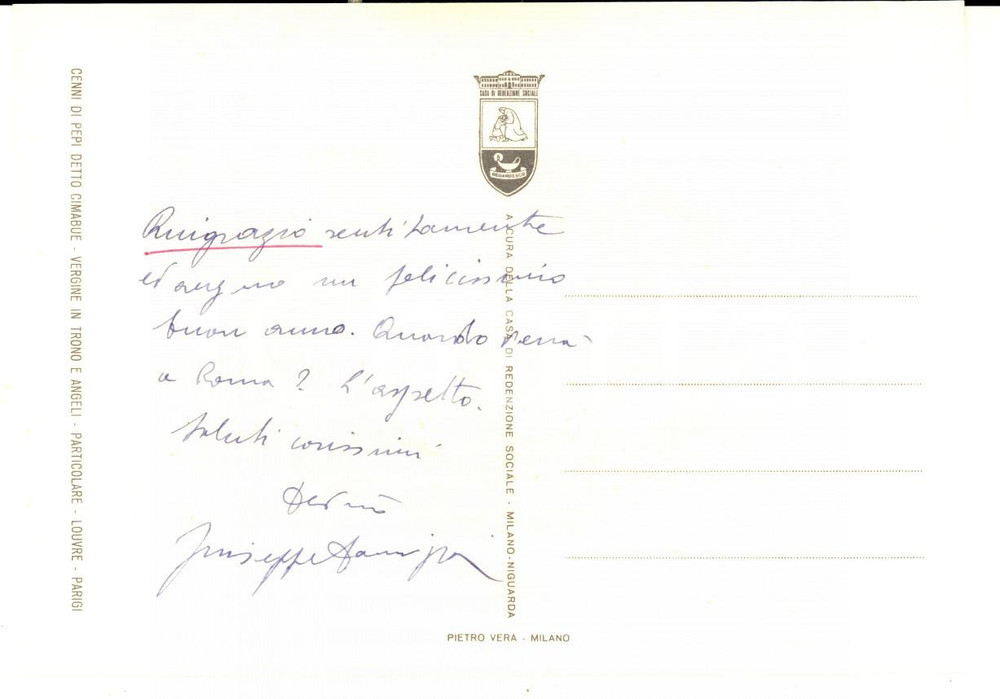 CENNI DI PEPI DETTO CIMABUE - VERGINE IN TRONO E ANGELI - PARTICOLARE - LOUVRE - PARIGI
CASA DI REDENZIONE SOCIALE
Ringrazio sentitamente
ed auguro un felicissimo
buon anno. Quando verrà
a Roma? L'aspetto.
Saluti carissimi
Giuseppe
A CURA DELLA CASA DI REDENZIONE SOCIALE - MILANO-NIGUARDA
PIETRO VERA - MILANO